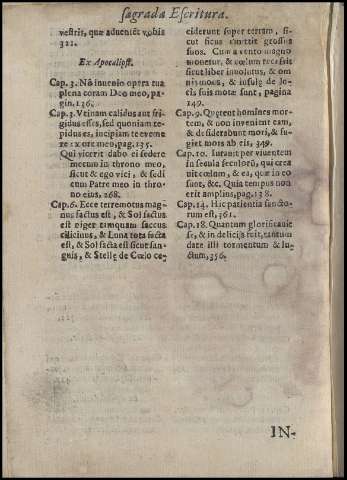 sagrada Escritura.
vestris, quæ adueniẽt vobis
321.
Ex Apocalipsi.
Cap. 3. Nõ inuenio opera tua
plena coram Deo meo, pa-
gin. 136.
Cap. 3. Vtinam calidus aut fri-
gidus esses, sed quoniam te-
pidus es, incipiam te euome
re ex ore meo, pag. 135.
Qui vicerit dabo ei sedere
mecum in throno meo,
sicut & ego vici, & sedi
cum Patre meo in thro
no eius, 268.
Cap. 6. Ecce terremotus mag-
nus factus est, & Sol factus
est niger tamquam saccus
cilicinus, & Luna tota facta
est, & Sol facta est sicut san-
guis, & Stellę de Cœlo ce-
ciderunt super terram, si-
cut ficus emittit grossos
suos. Cum a vento magno
mouetur, & cœlum recessit
sicut liber inuolutus, & om
nis mons, & insulę de lo-
cis suis motæ sunt, pagina
149.
Cap. 9. Quęrent homines mor-
tem, & non inuenient eam,
& desiderabunt mori, & fu-
giet mors ab eis, 349.
Cap. 10. Iurauit per viuentem
in secula seculorũ, qui crea
uit cœlum, & ea, quæ in eo
sunt, &c. Quia tempus non
erit amplius, pag. 138.
Cap. 14. Hic patientia sancto-
rum est, 361.
Cap. 18. Quantum glorificauit
se, & in delicijs fuit, tantum
date illi tormentum & lu-
ctum, 356.
IN-